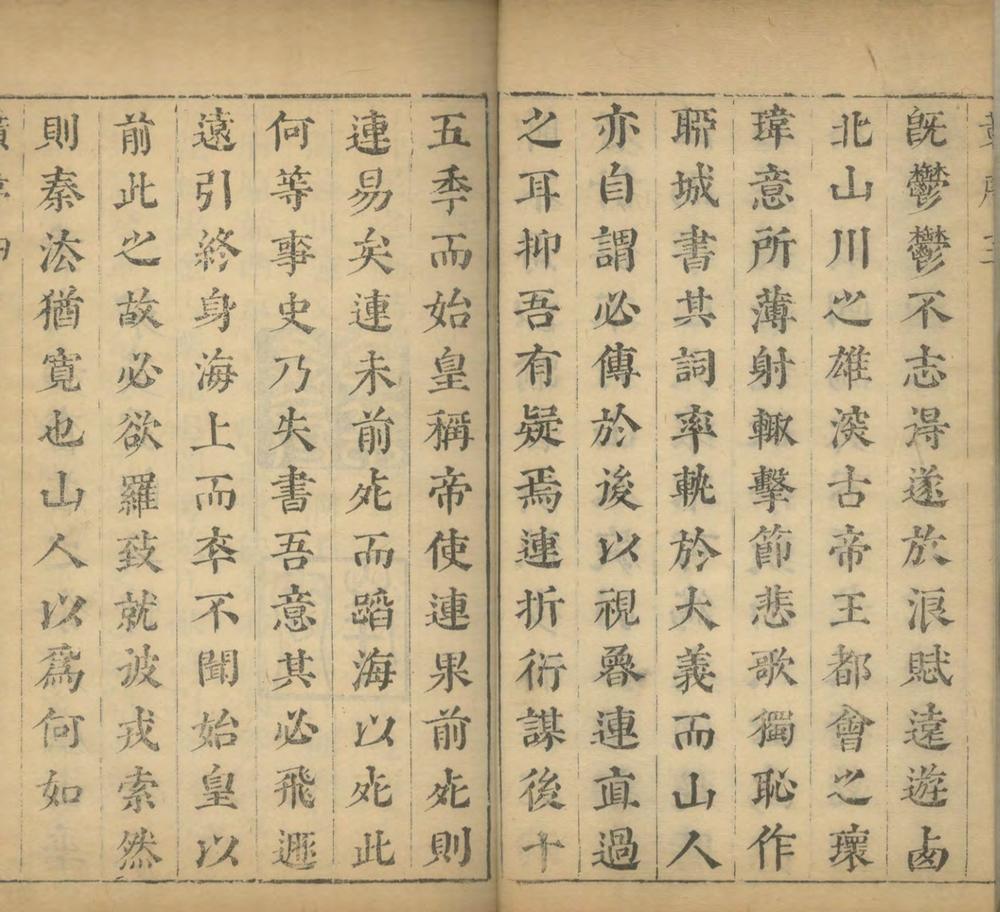 既鬱鬱不志得遂放浪賦遠遊卤
北山川之雄深古帝王都會之瓌
瑋意所薄射輙擊節悲歌獨恥作
聊城書其詞率軌於大義而山人
亦自謂必傳於後以視魯連直過
之耳抑吾有疑焉連折衍謀後十
五季而始皇稱帝使連果前死則
連易矣連未前死而蹈海以死此
何等事史乃失書吾意其必飛遯
遠引終身海上而卒不聞始皇以
前此之故必欲羅致就彼戎索然
則秦法猶寬也山人以為何如